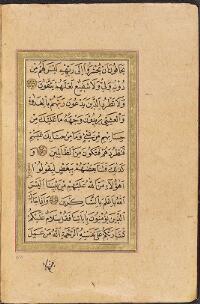 يخافون ان يحشروا الى ربهم ليس لهم من
دونه ولي ولا شفيع لعلهم يتقون
ولا تطرد الذين يدعون ربهم بالغدوة
والعشي يريدون وجهه ما عليك من
حسابهم من شيء وما من حسابك عليهم
فتطردهم فتكون من الظالمين
كذلك فتنا بعضهم ببعض ليقولوا
اهؤلاء من الله عليهم من بيننا اليس
الله باعلم بالشاكرين واذا جاءك
الذين يؤمنون باياتنا فقل سلام عليكم
كتب ربكم على نفسه الرحمة انه من عمل